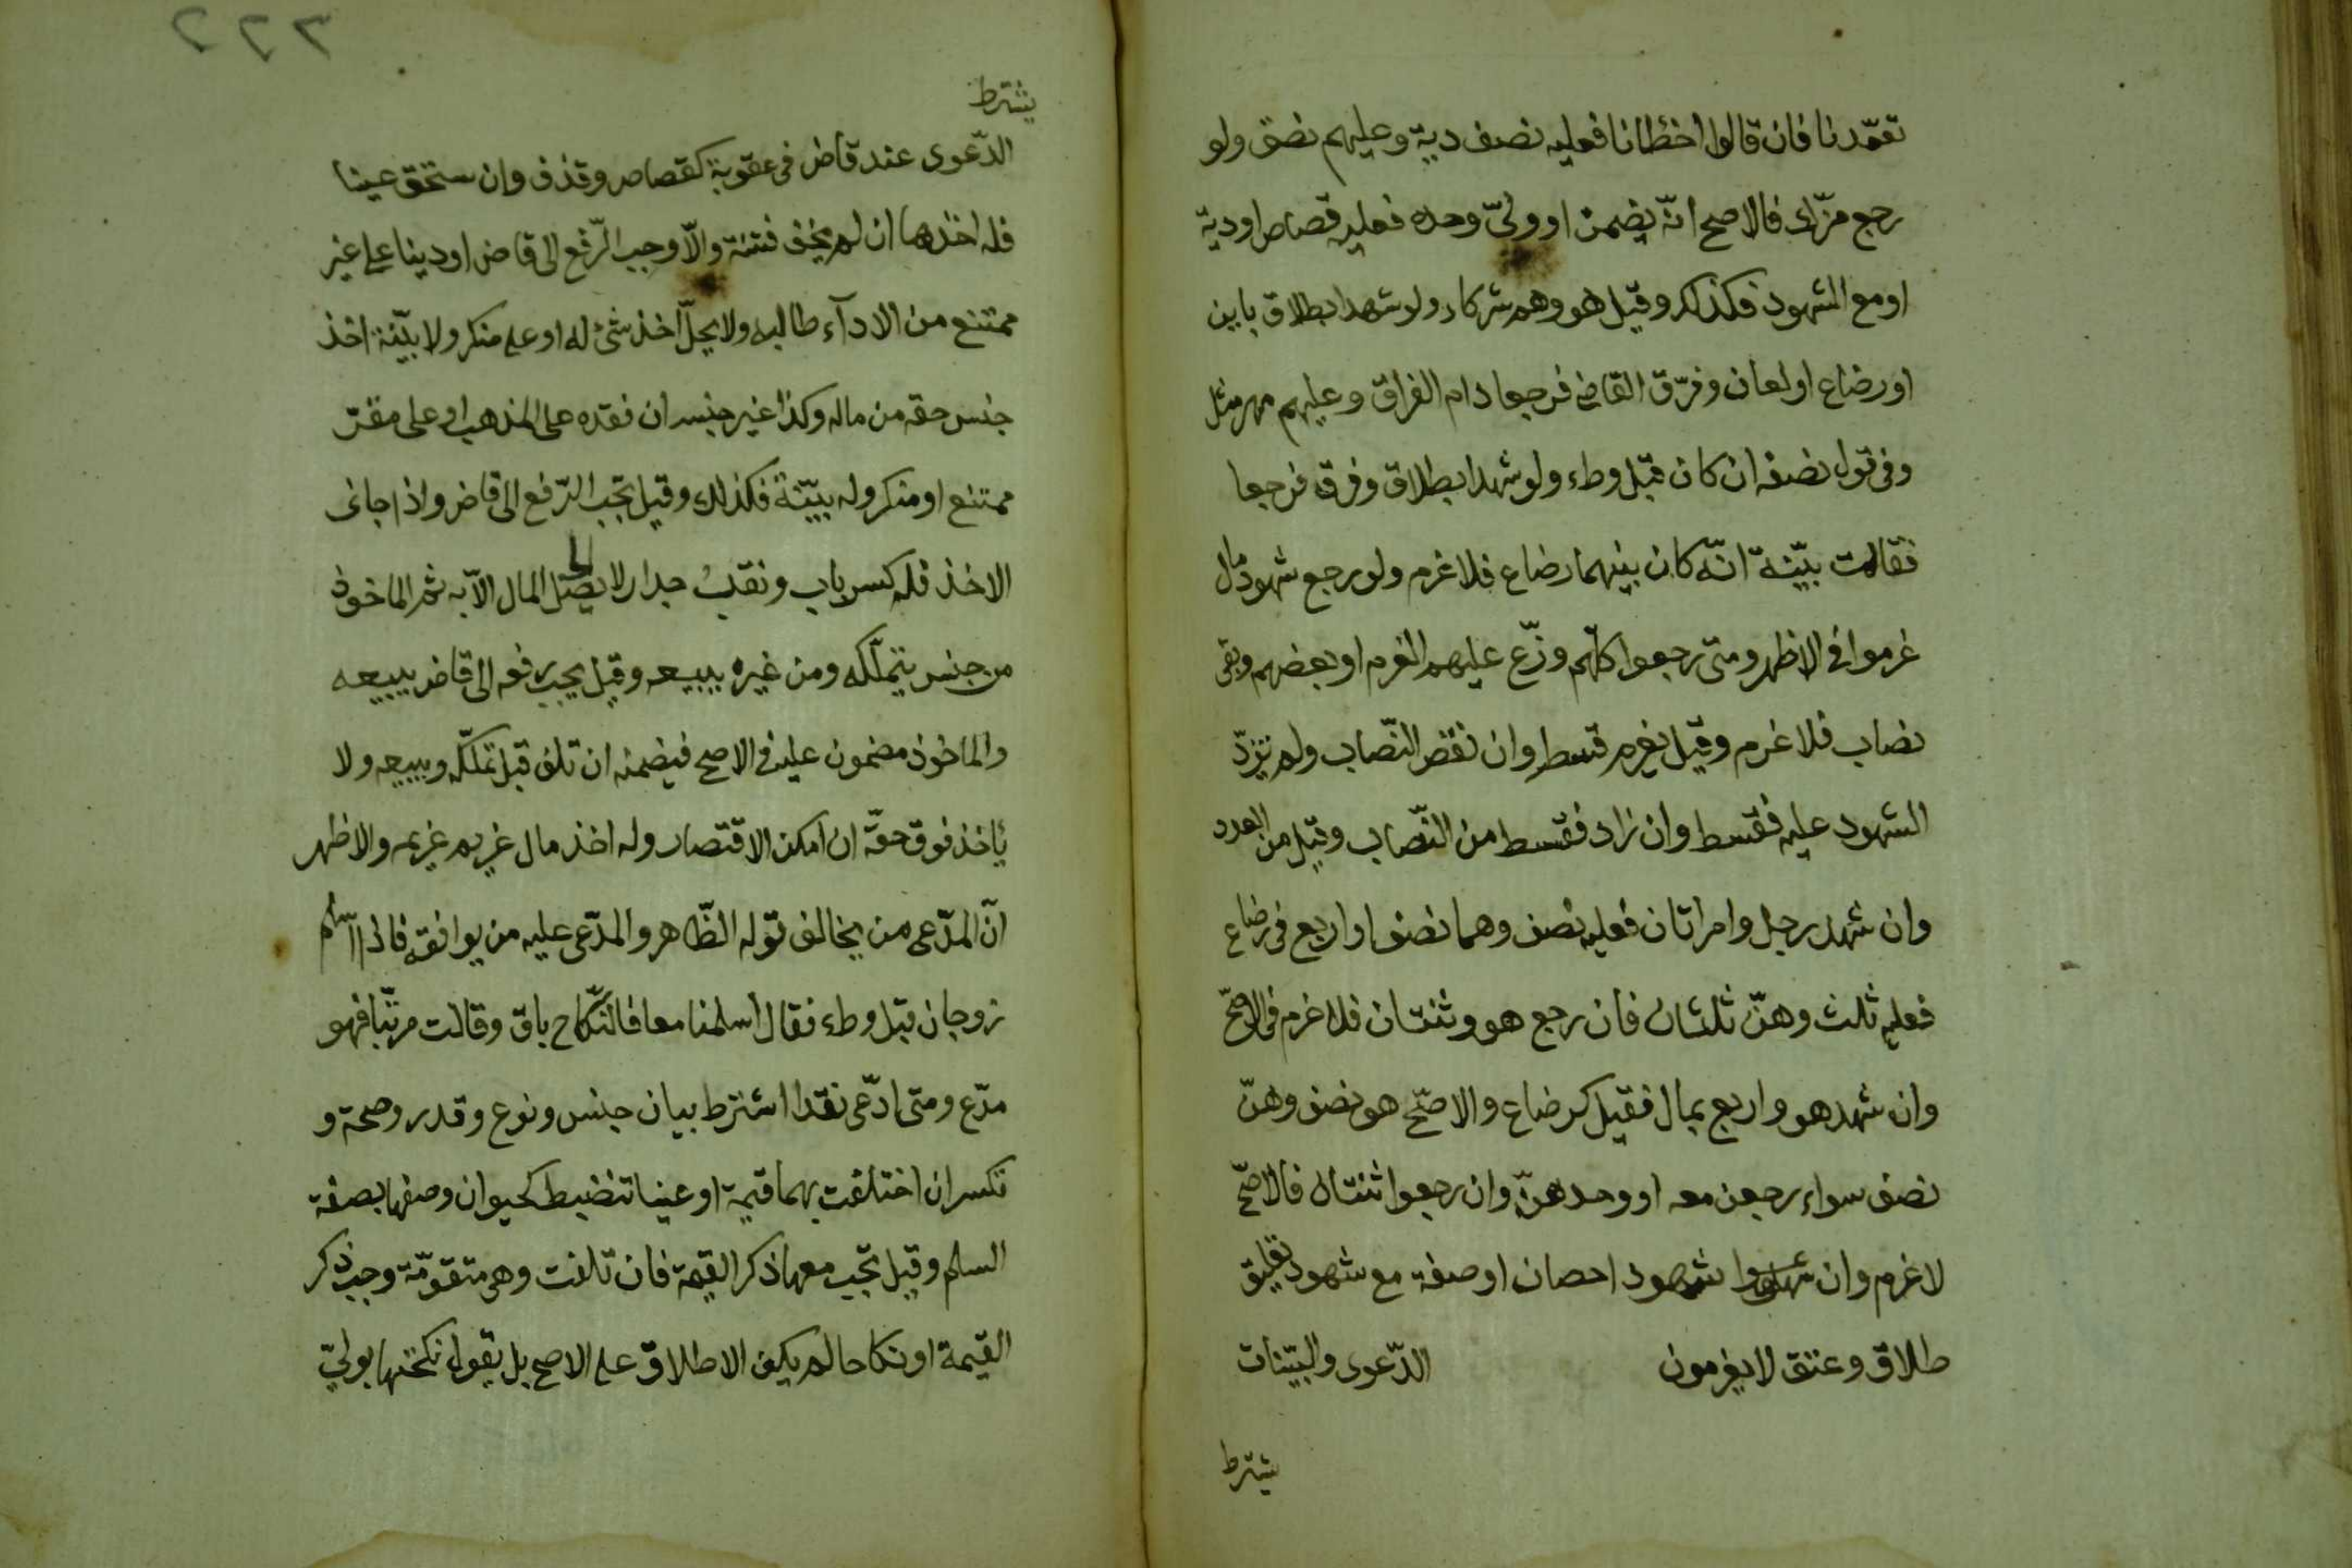 تعمّدنا فان قالوا اخطانا فعليه نصف دية وعليهم نصف ولو
رجع مزّك فالاصح انّه يضمن او وليّ وحده فعليه قصاص او دية
او مع الشهود فكذلك وقيل هو وهم شركاء ولو شهدا بطلاق باين
او رضاع او لعان وفرّق القاضي فرجعا دام الفراق وعليهم مهر مثل
وفي قول نصفه ان كان قبل وطء ولو شهدا بطلاق وفرق فرجعا
فقالمت بيّنة انّه كان بينهما رضاع فلا غرم ولو رجع شهود مال
غرموا في الاظهر ومتى رجعوا كلّهم وزّع عليهم الغرم او بعضهم وبقى
نصاب فلا غرم وقيل يغرم قسط وان نقص النّصاب ولم تزدّ
الشهود عليه فقسط وان زاد فقسط من النّصاب وقيل من العدد
وان شهد رجل وامراتان فعليه نصف وهما نصف او اربع في رضاع
فعليه ثلث وهنّ ثلثان فان رجع هو وثنتان فلا غرم في الاصحّ
وان شهد هو واربع بمال فقيل كرضاع والاصحّ هو نصف وهنّ
نصف سواء رجعن معه او وحدهنّ وان رجعوا ثنتان فالاصحّ
لا غرم وان شهود احصان او صفة مع شهود تعليق
طلاق وعتق لا يغرمون الدّعوى والبيّنات
يشترط
٢٢٢
يشترط
الدّعوى عند قاض في عقوبة كقصاص وقذف وان ستحق عينا
فله اخذها ان لم يخف فتنة والّا وجب الرّفع الى قاض او دينا على غير
ممتنع من الاداء طالبه ولا يحلّ اخذ شئ له او على منكر ولا بيّنة اخذ
جنس حقه من ماله وكذا غير جنسه ان فقده على المذهب او على مقرّ
ممتنع او منكر وله بيّنة فكذلك وقيل يجب الرّفع الى قاض واذا جاني
الاخذ فله كسر باب ونقب جدار لا يصل المال الّا به ثم الماخوذ
من جنس يتملّكه ومن غيره يبيعه وقيل يجب رفعه الى قاض يبيعه
والماخوذ مضمون عليه في الاصح فيضمنه ان تلف قبل تملّكه وبيعه ولا
ياخذ فوق حقّه ان امكن الاقتصار وله اخذ مال غريم غريمه والاظهر
انّ المدّعى من يخالف قوله الظّاهر والمدّعى عليه من يوافقه فاذا اسلم
زوجان قبل وطء فقال اسلمنا معا فالنّكاح باق وقالت مرتّبا فهو
مدّع ومتى ادّعى نقدا اشترط بيان جنس ونوع وقدر وصحة و
تكسر ان اختلفت بهما قيمة او عينا تنضبط كحيوان وصفها بصفة
السلم وقيل يجب معها ذكر القيمة فان تلفت وهي متقوّمة وجب ذكر
القيمة او نكاحا لم يكف الاطلاق على الاصح بل يقول نكحتها بوليّ